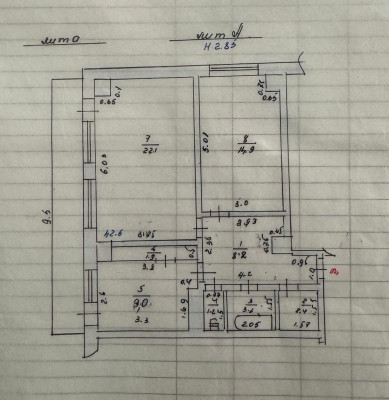 лит а
лит А
Н 2.85
0.65
0.1
0.75
0.65
9.5
7
22.1
6.03
5.01
8
14.9
42.6
3.85
3.0
3.93
0.45
2.36
1
8.8
0.75
0.96
1.0
3.3
0.5
4.2
0.4
5
9.0
2.6
1.69
3.3
1.5
3
2.05
1.55
2.4
1.57
1.55